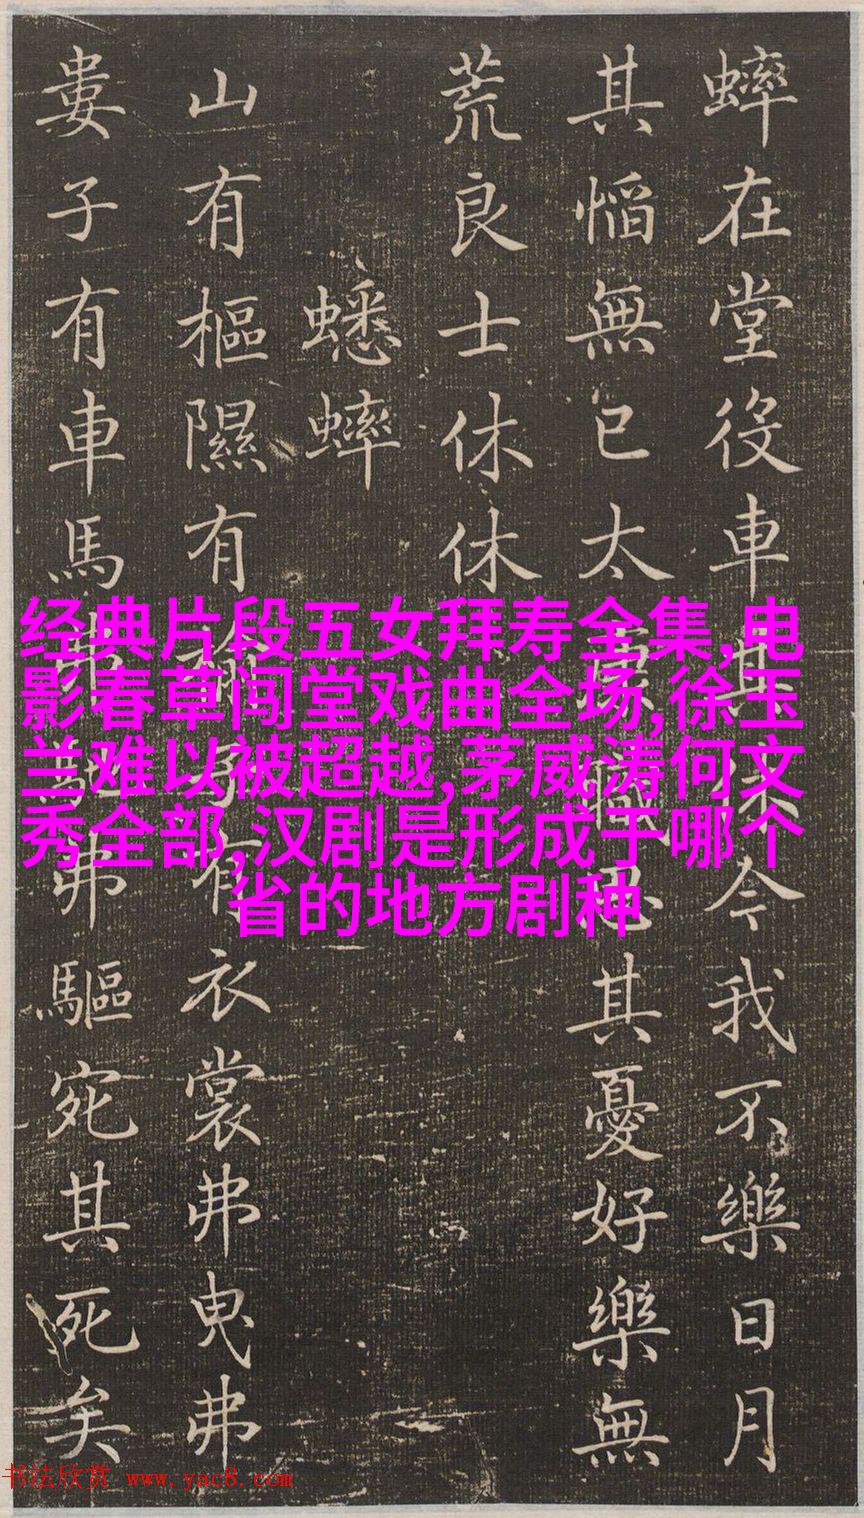 蟀在堂役車其休今我不樂日月
其慆無已太康職思其憂好樂無
荒良士休休
蟋蟀
山有樞隰有榆子有衣裳弗曳弗
婁子有車馬弗馳弗驅宛其死矣
经典片段五女拜寿全集,电
影春草闯堂戏曲全场,徐玉
兰难以被超越,茅威涛何文
秀全部,汉剧是形成于哪个
省的地方剧种
书法欣赏 www.yac8.com